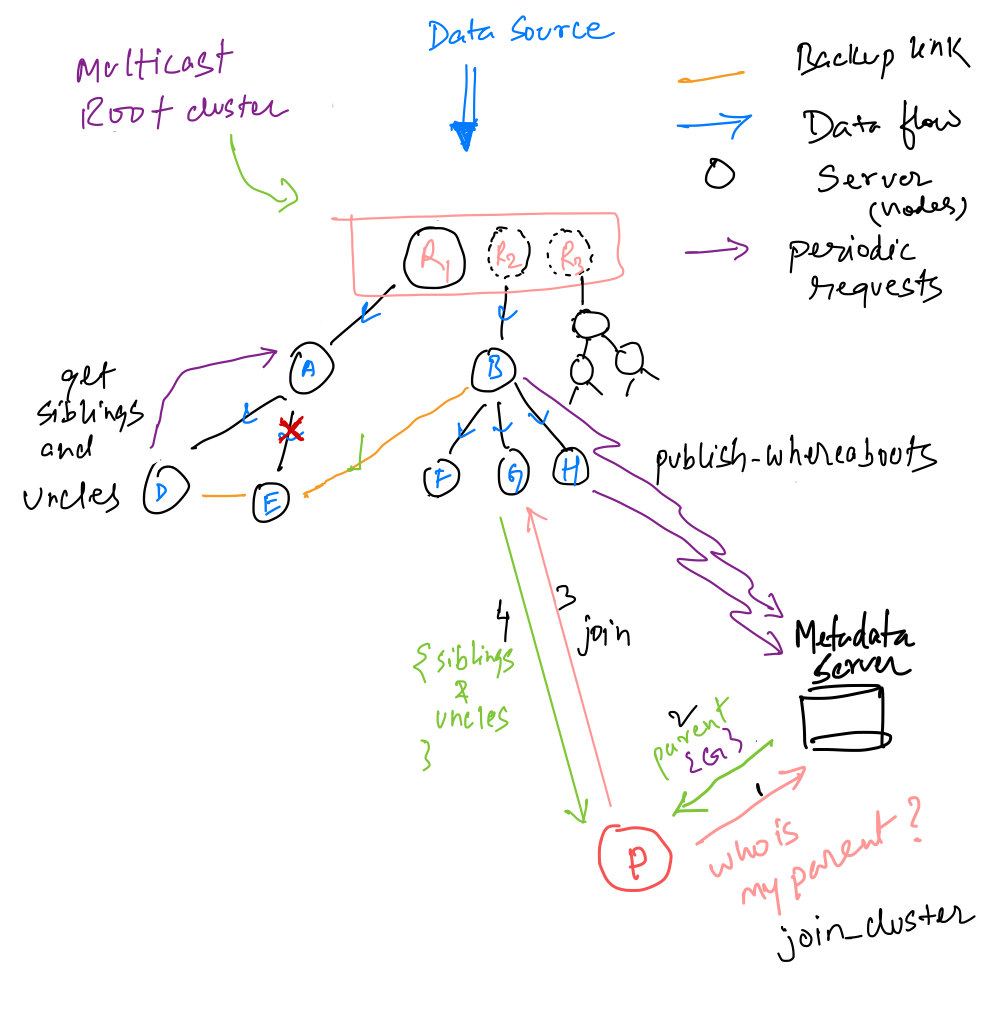 Data Source
Multicast
Root cluster
Backup link
Data flow
Server
(nodes)
periodic
requests
R1
R2
R3
A
B
get
siblings
and
uncles
D
E
F
G
H
publish-whereabouts
3
join
4
{siblings
&
uncles
}
Metadata
Server
2
parent
{G}
1
P
who is
my parent?
join_cluster